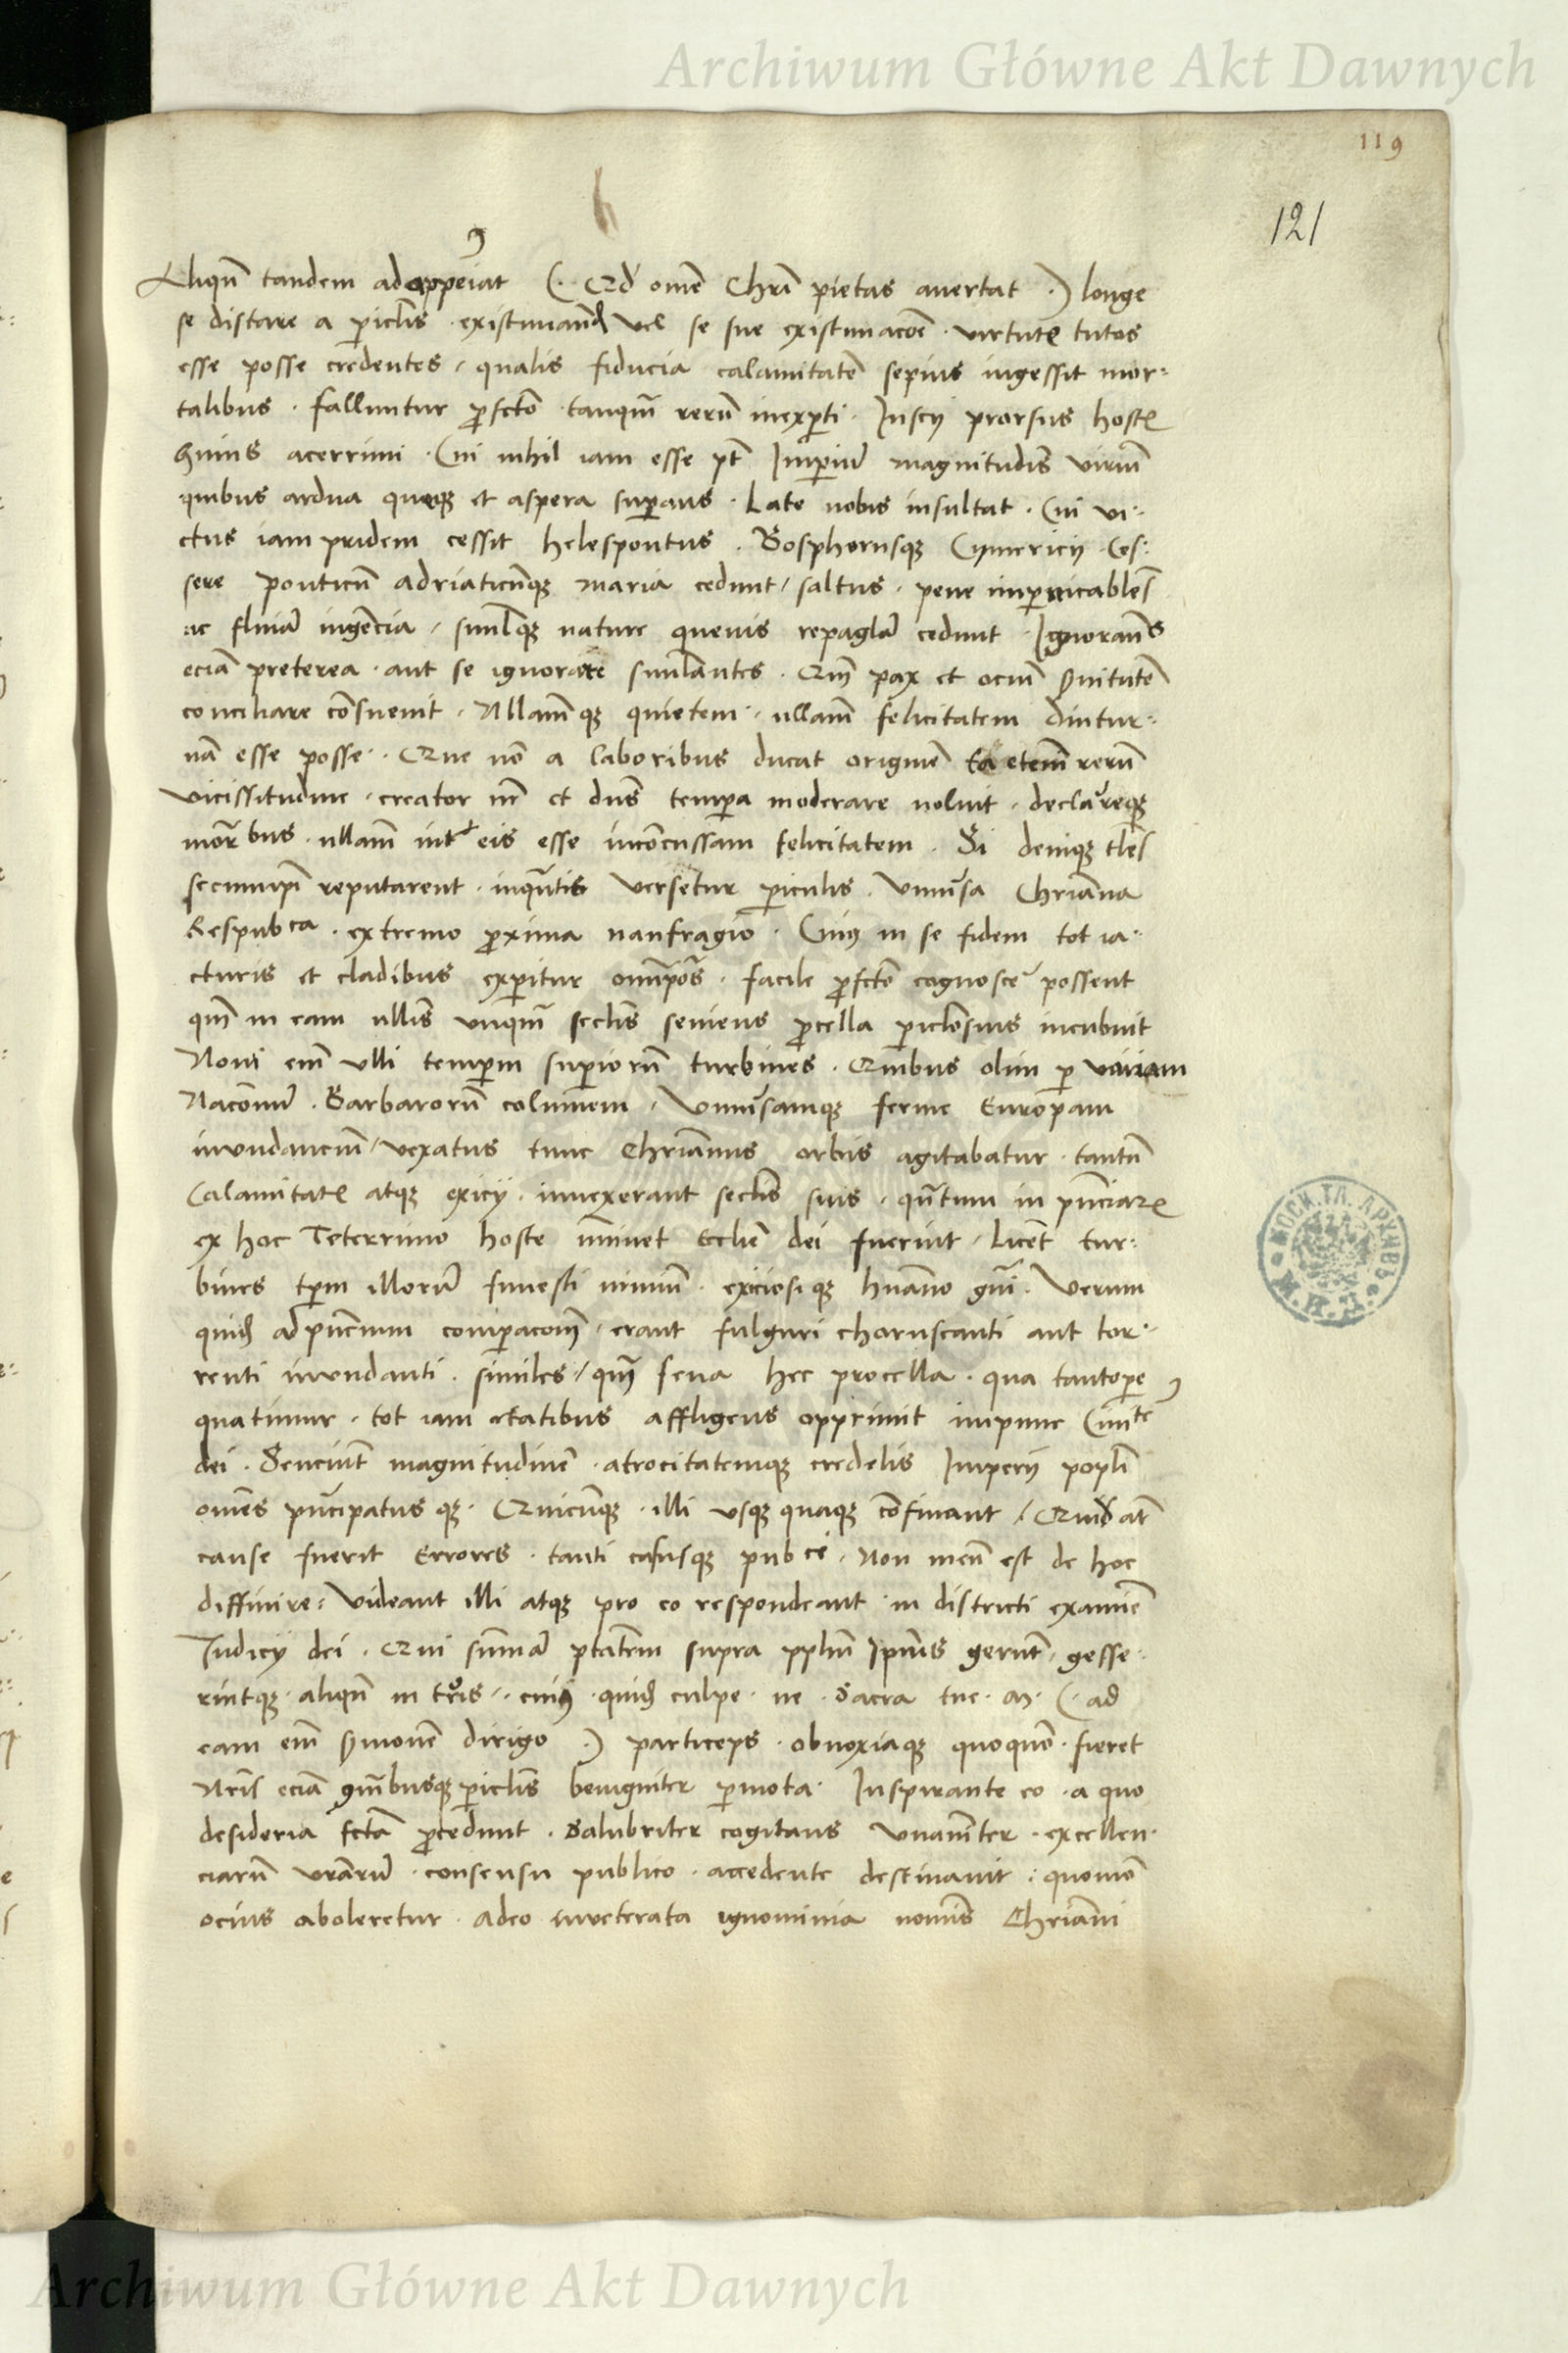 Archiwum Główne Akt Dawnych
119
121
Aliqn̄ tandem adappeiat (· Qd omē Chrī pietas avertat ·) longe
se distare a piclīs · existimand vel se sue existimacoē · virtute tutos
esse posse credentes / qualis fiducia calamitatē sepius ingessit mor:
talibus · falluntur pfcto tanqm̄ rerū inexpti · Inscij prorsus hoste
huius acerrimi · Cui nihil iam esse pt Impium magnitudīs virium
quibus ardua queqz et aspera supans · Late nobis insultat · Cui vi:
ctus iam pridem cessit helespontus · Bosphorusqz Cymericij · Ces:
sere ponticū adriaticūqz maria cedunt / saltus · pene
ac fluviā ingēcia / similqz nature quevis repaglā cedunt · Ignorans
eciā preterea · aut se ignorare simlantes · Qm̄ pax et ociū
conciliare cōsuevit · Nllamqz quietem · ullam̄ felicitatem diutur:
nā esse posse · Que nō a laboribus ducat originē Ea etenim rerū
vicissitudine · creator nr̄ et dūs tempa moderare voluit · declareqz
morbus · ullam̄ int eis esse incōcussam felicitatem · Si deniqz tles
secumipī reputarent · inqūtis versetur piculis · Univsa Chriāna
Respubca · extremo pxima naufragio · Cuius in se fidem tot ia:
cturis et cladibus expitur omīpos · facile pfcto cognosce possent
qm̄ in eam ullis unqm̄ seclīs seviens pcella piclosius incubuit
Nōni em̄ ulli tempm supiorū turbines · Quibus olim p variam
Nacōnum · Barbarorū coluuiem · Univsamqz ferme Europam
inundanciū / vexatus tunc Chriānus orbis agitabatur · tantū
Calamitate atqz exicij · invexerant seclīs suis · qūtum in
ex hoc Teterrimo hoste īminet Ecclie dei fuerint / licēt tur:
bines tpm illorū funesti nimiū · exiciosiqz hūano gnī · Verum
quid ad compacom · erant fulguri choruscanti aut tor:
renti inundanti · similes / qm̄ seva hec procella · qua tantope
quatimur · tot iam etatibus affligens opprimit impune Civite
dei · Senciūt magnitudinē · atrocitatemqz credelis Imperij poplī
omēs pncipatusqz · Quicunqz · illi usqz quaqz cōfinant / Quid at
cause fuerit Errores · tanti casusqz pubce · Non meū est de hoc
diffinire : Videant illi atqz pro eo respondeant in districti examine
Iudicij dei · Qui summā ptatem supra pplm ipius gerūt · gesse:
rintqz · aliqn̄ in tris · cuius · quid culpe · ne · Sacra tue · m · (· ad
eam em̄ smonē dirigo ·) particeps · obnoxiaqz quoquō · fieret
Nris eciā piclīs benigniter pmota · Inspirante eo · a quo
desideria scta pcedunt · Salubriter cogitans Unanīter · excellen:
ciarū vrārū · consensu publico · accedente destinavit : quomō
ocius aboleretur · adeo inveterata ignominia nomīs Chriāni
Archiwum Główne Akt Dawnych